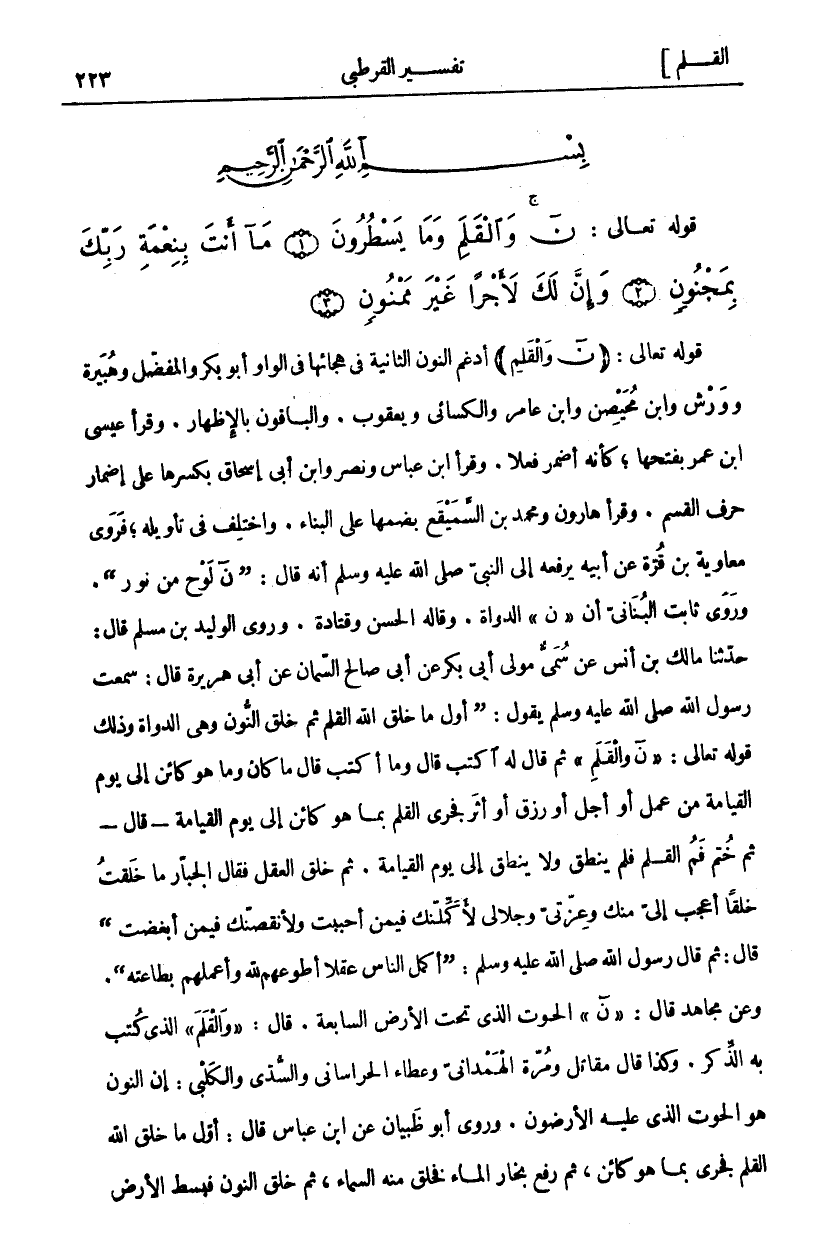 القلم ] تفسير القرطبى ٢٢٣
بِسْمِ ٱللَّهِ ٱلرَّحْمَٰنِ ٱلرَّحِيمِ
قوله تعالى : نٓ ۚ وَٱلْقَلَمِ وَمَا يَسْطُرُونَ ﴿١﴾ مَآ أَنتَ بِنِعْمَةِ رَبِّكَ
بِمَجْنُونٍ ﴿٢﴾ وَإِنَّ لَكَ لَأَجْرًا غَيْرَ مَمْنُونٍ ﴿٣﴾
قوله تعالى : ﴿ نٓ وَالْقَلَمِ ﴾ أدغم النون الثانية فى هجائها فى الواو أبو بكر والمفضّل وهُبَيرة
ووَرْش وابن مُحَيْصِن وابن عامر والكسائى ويعقوب . والباقون بالإظهار . وقرأ عيسى
ابن عمر بفتحها ؛ كأنه أضمر فعلا . وقرأ ابن عباس ونصر وابن أبى إسحاق بكسرها على إضمار
حرف القسم . وقرأ هارون ومحمد بن السَّمَيْقَع بضمها على البناء . واختلف فى تأويله ؛ فَرَوَى
معاوية بن قُرّة عن أبيه يرفعه إلى النبىّ صلى الله عليه وسلم أنه قال : ” نٓ لَوْح من نور “ .
ورَوَى ثابت البُنَانىّ أن « ن » الدواة . وقاله الحسن وقتادة . وروى الوليد بن مسلم قال :
حدّثنا مالك بن أنس عن سُمَىٌّ مولى أبى بكر عن أبى صالح السّمان عن أبى هريرة قال : سمعت
رسول الله صلى الله عليه وسلم يقول : ” أول ما خلق الله القلم ثم خلق النُّون وهى الدواة وذلك
قوله تعالى : « نٓ وَالْقَلَمِ » ثم قال له اكتب قال وما أكتب قال ما كان وما هو كائن إلى يوم
القيامة من عمل أو أجل أو رزق أو أثَر فجرى القلم بمـا هو كائن إلى يوم القيامة — قال —
ثم خُتم فَمُ القلم فلم ينطق ولا ينطق إلى يوم القيامة . ثم خلق العقل فقال الجبار ما خَلقتُ
خلقًا أعجب إلىّ منك وعِزّتىِ وجلالى لأُكَمِّلنّك فيمن أحببت ولأنقصنّك فيمن أبغضت “
قال : ثم قال رسول الله صلى الله عليه وسلم : ” أكمل الناس عقلا أطوعهم لله وأعملهم بطاعته “ .
وعن مجاهد قال : « نٓ » الحوت الذى تحت الأرض السابعة . قال : « وَالْقَلَمَ » الذى كُتب
به الذِّكر . وكذا قال مقاتل ومُرّة الهَمْدانىّ وعطاء الخراسانى والسُّدّى والكَلْبى : إن النون
هو الحوت الذى عليه الأرضون . وروى أبو ظَبيان عن ابن عباس قال : أوّل ما خلق الله
القلم فجرى بمـا هو كائن ، ثم رفع بخار المـاء فخلق منه السماء ، ثم خلق النون فبسط الأرض